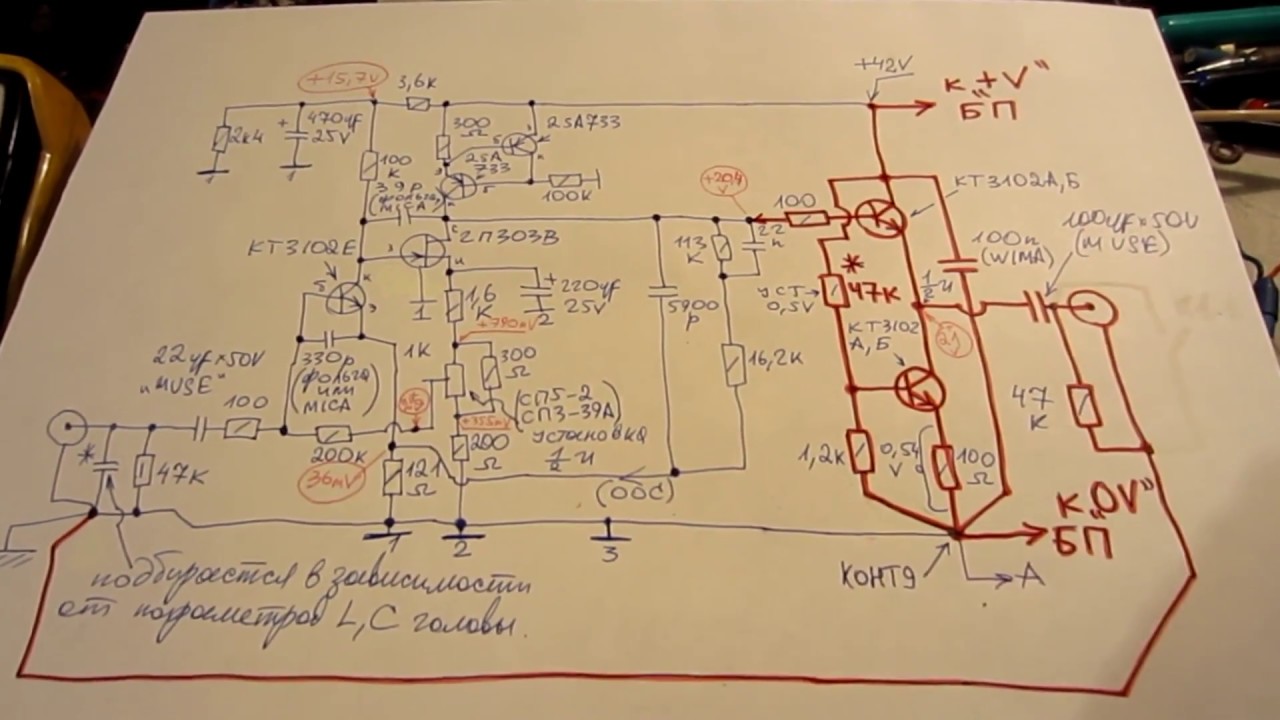 +42V
к "+V"
БП
+15,7V
3,6к
2к4
+
470µf
25V
100
к
300
Ω
2SA733
2SA
733
39p
(фольга,
MICA)
100к
КТ3102Е
2П303В
+20,4
V
100
113
К
22
n
КТ3102А,Б
100n
(WIMA)
100µf×50V
(MUSE)
1,6
К
+
220µf
25V
1
2
+790mV
5900
p
уст
0,5V
*
47К
½И
КТ3102
А,Б
21
330p
(фольга
или
MICA)
1К
300
Ω
(СП5-2
СП3-39А)
установка
½И
+355mV
16,2К
22µf×50V
"MUSE"
100
200К
*
47К
36mV
121
Ω
200
Ω
(ООС)
1,2К
0,54
V
100
Ω
47
К
1
2
3
к "0V"
БП
КОНТ9
А
подбирается в зависимости
от параметров L,C головы.